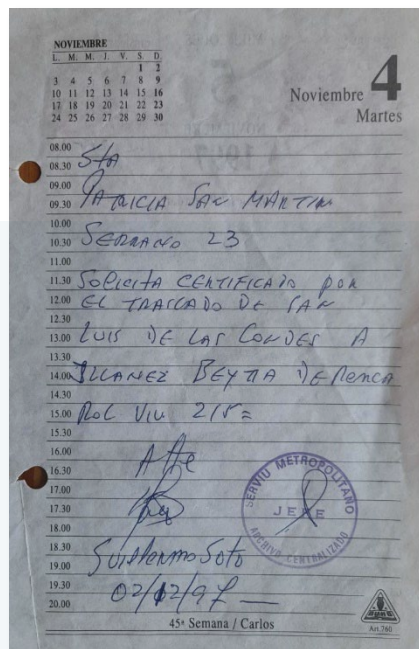 NOVIEMBRE
L. M. M. J. V. S. D.
1 2
3 4 5 6 7 8 9
10 11 12 13 14 15 16
17 18 19 20 21 22 23
24 25 26 27 28 29 30
Noviembre 4
Martes
08.00
08.30 Sta
09.00
09.30 Patricia San Martin
10.00
10.30 Serrano 23
11.00
11.30 Solicita certificado por
12.00 el traslado de San
12.30
13.00 Luis de las Condes a
13.30
14.00 Illanez Beytia de Renca
14.30
15.00 Rol Viv 215=
15.30
16.00 Atte
16.30
17.00
17.30
18.00
18.30 Guillermo Soto
19.00
19.30 02/12/97
20.00
SERVIU METROPOLITANO
JEFE
ARCHIVO CENTRALIZADO
45ª Semana / Carlos
Art.760